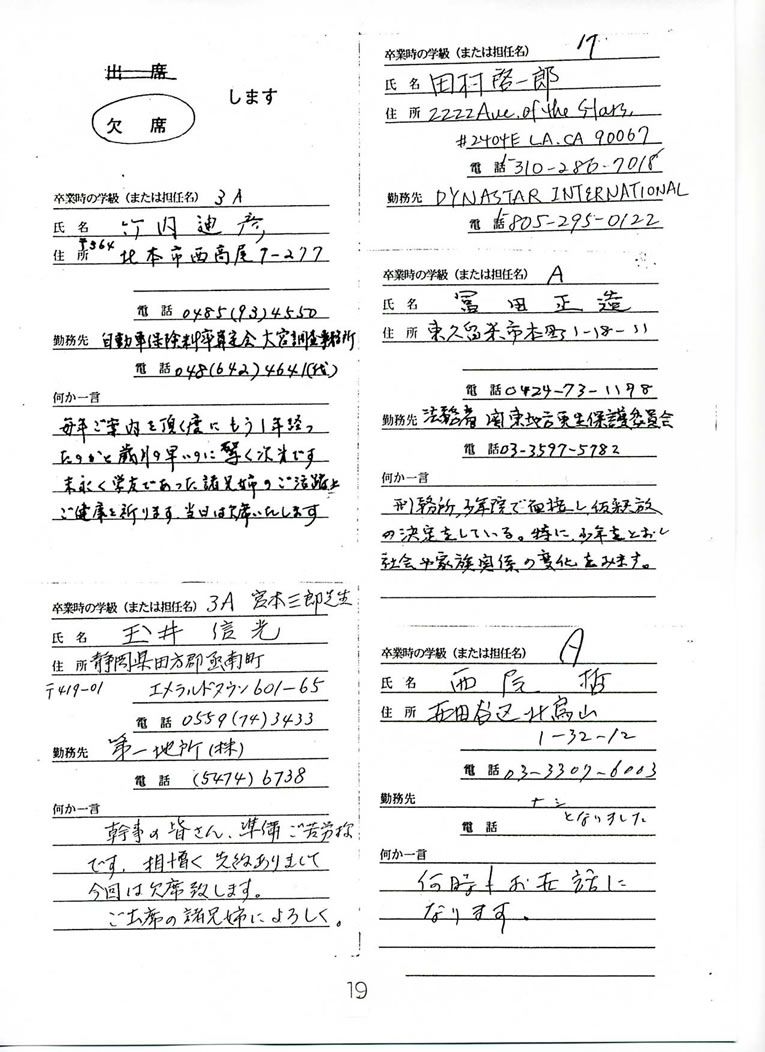 出席
欠席
します
卒業時の学級（または担任名） 3A
氏名 竹内迪彦
住所 〒364 北本市西高尾7-277
電話 0485(93)4550
勤務先 自動車保険料率算定会 大宮調査事務所
電話 048(642)4641(代)
何か一言
毎年ご案内を頂く度にもう1年経っ
たのかと歳月の早いのに驚く次第です
末永く学友であった諸兄姉のご活躍と
ご健康を祈ります。当日は欠席いたします
卒業時の学級（または担任名） 3A 宮本三郎先生
氏名 玉井信光
住所 静岡県田方郡函南町
〒419-01 エメラルドタウン601-65
電話 0559(74)3433
勤務先 第一地所(株)
電話 (5474)6738
何か一言
幹事の皆さん、準備ご苦労様
です。相憎く先約ありまして
今回は欠席致します。
ご出席の諸兄姉によろしく。
卒業時の学級（または担任名） 17
氏名 田村啓一郎
住所 2222 Ave. of the Stars,
#2404E LA. CA 90067
電話 310-286-7018
勤務先 DYNASTAR INTERNATIONAL
電話 805-295-0122
卒業時の学級（または担任名） A
氏名 冨田正造
住所 東久留米市本町1-18-11
電話 0424-73-1198
勤務先 法務省 関東地方更生保護委員会
電話 03-3597-5782
何か一言
刑務所、少年院で面接し、仮釈放
の決定をしている。特に、少年をとおし
社会や家族関係の変化をみます。
卒業時の学級（または担任名） A
氏名 西院 哲
住所 世田谷区北烏山
1-32-12
電話 03-3307-6003
勤務先 ナシ
電話 となりました
何か一言
何時もお世話に
なります。
19